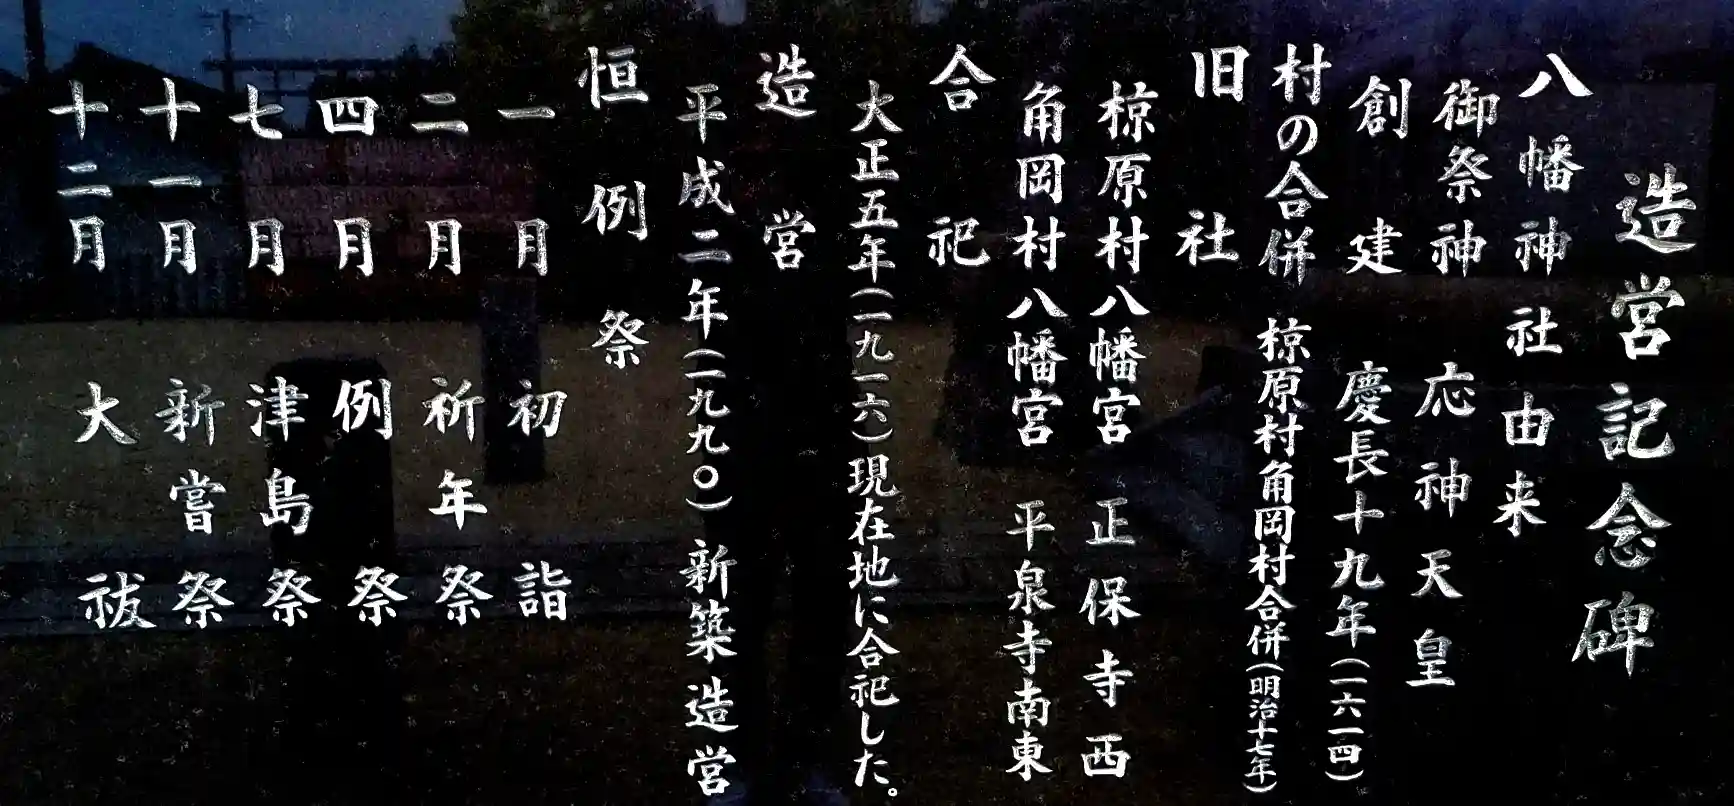 造営記念碑
八幡神社由来
御祭神 応神天皇
創建 慶長十九年(一六一四)
村の合併 椋原村角岡村合併(明治十七年)
旧社
椋原村八幡宮 正保寺西
角岡村八幡宮 平泉寺南東
合祀
大正五年(一九一六)現在地に合祀した。
造営
平成二年(一九九〇) 新築造営
恒例祭
一月 初詣
二月 祈年祭
四月 例祭
七月 津島祭
十一月 新嘗祭
十二月 大祓